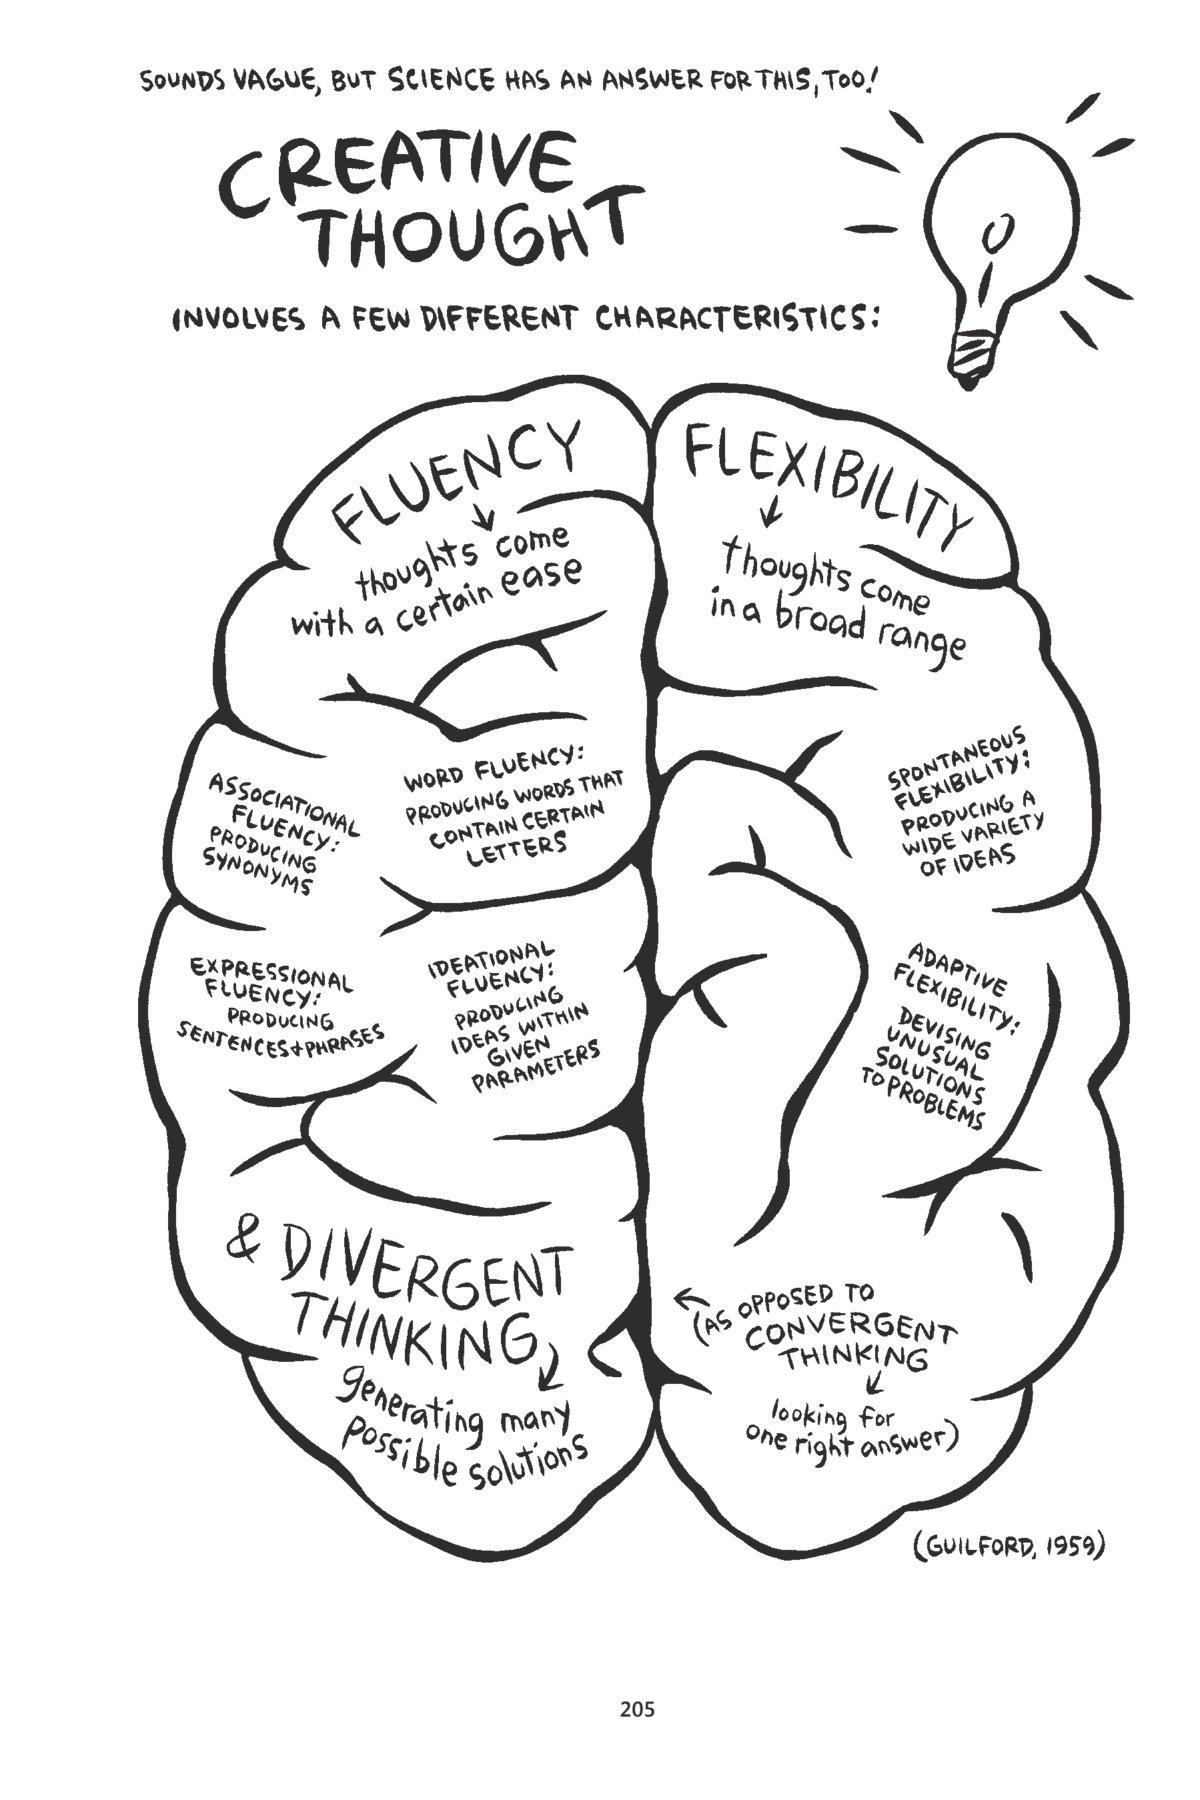 SOUNDS VAGUE, BUT SCIENCE HAS AN ANSWER FOR THIS, TOO!
CREATIVE
THOUGHT
INVOLVES A FEW DIFFERENT CHARACTERISTICS:
FLUENCY
thoughts come
with a certain ease
FLEXIBILITY
thoughts come
in a broad range
ASSOCIATIONAL
FLUENCY:
PRODUCING
SYNONYMS
WORD FLUENCY:
PRODUCING WORDS THAT
CONTAIN CERTAIN
LETTERS
SPONTANEOUS
FLEXIBILITY:
PRODUCING A
WIDE VARIETY
OF IDEAS
EXPRESSIONAL
FLUENCY:
PRODUCING
SENTENCES + PHRASES
IDEATIONAL
FLUENCY:
PRODUCING
IDEAS WITHIN
GIVEN
PARAMETERS
ADAPTIVE
FLEXIBILITY:
DEVISING
UNUSUAL
SOLUTIONS
TO PROBLEMS
& DIVERGENT
THINKING
generating many
possible solutions
(AS OPPOSED TO
CONVERGENT
THINKING
looking for
one right answer)
(GUILFORD, 1959)
205